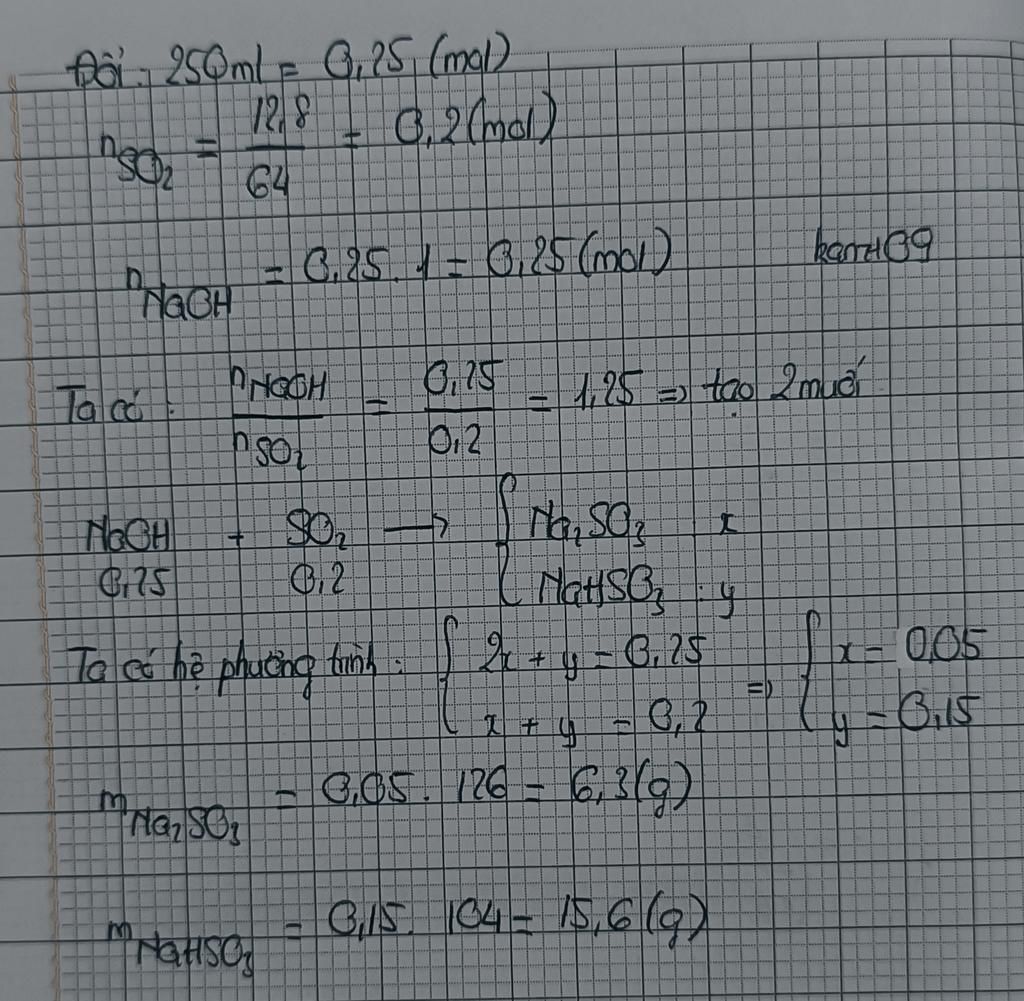 Đổi: 250ml = 0,25 (mol)
nSO₂ = 12,8/64 = 0,2 (mol)
nNaOH = 0,25 . 1 = 0,25 (mol)
kanz09
Ta có: nNaOH/nSO₂ = 0,25/0,2 = 1,25 => tạo 2 muối
NaOH + SO₂ → { Na₂SO₃ x
0,25 0,2 { NaHSO₃ : y
Ta có hệ phương trình: { 2x + y = 0,25 => { x = 0,05
{ x + y = 0,2 { y = 0,15
mNa₂SO₃ = 0,05 . 126 = 6,3 (g)
mNaHSO₃ = 0,15 . 104 = 15,6 (g)